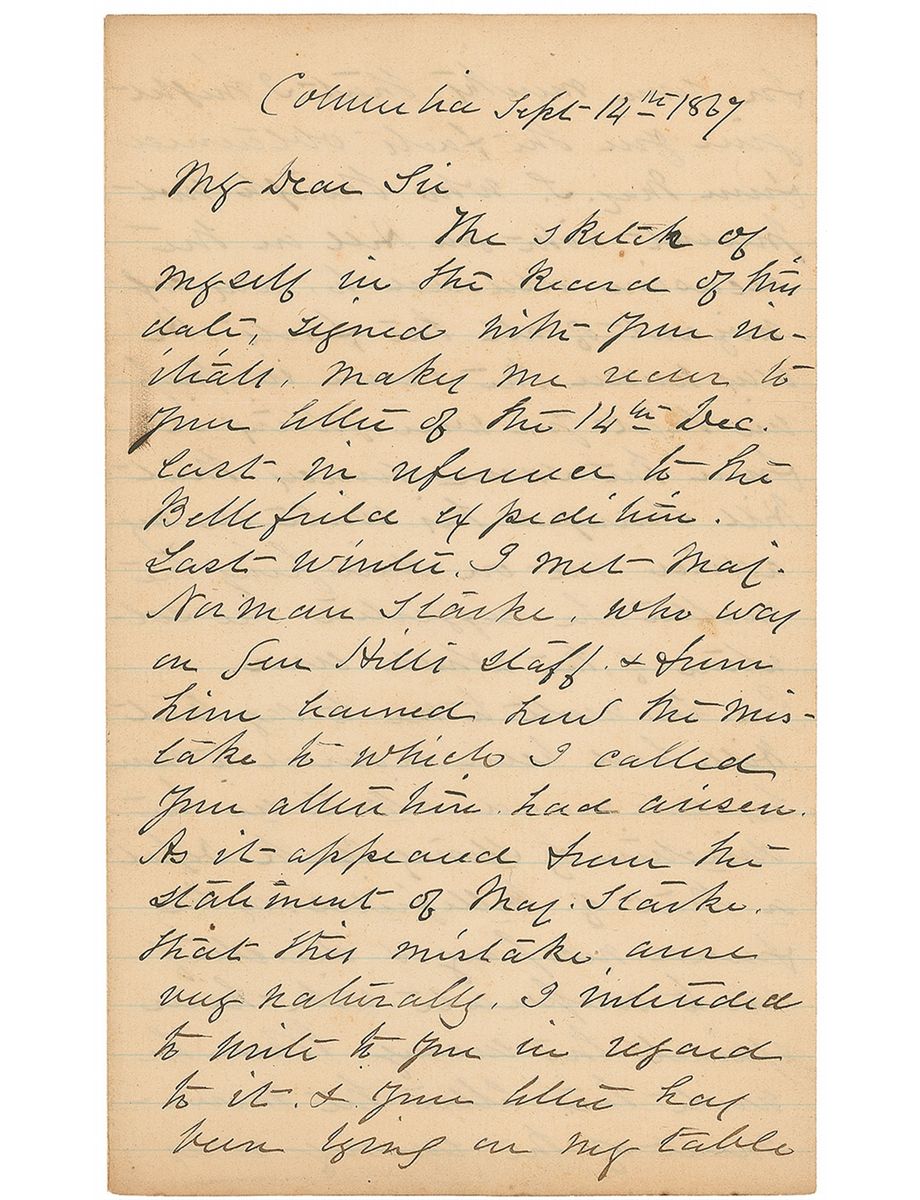 Columbia Sept 14th 1867
My Dear Sir
The sketch of
myself in the Record of this
date, signed with your in-
itials, makes me recur to
your letter of the 14th Dec.
last, in reference to the
Bellefield expedition.
Last winter, I met Maj.
Norman Starke, who was
on Gen Hills staff, & from
him learned how the mis-
take to which I called
your attention, had arisen.
As it appeared from the
statement of Maj. Starke,
that this mistake arose
very naturally, I intended
to write to you in regard
to it, & your letter has
been lying on my table